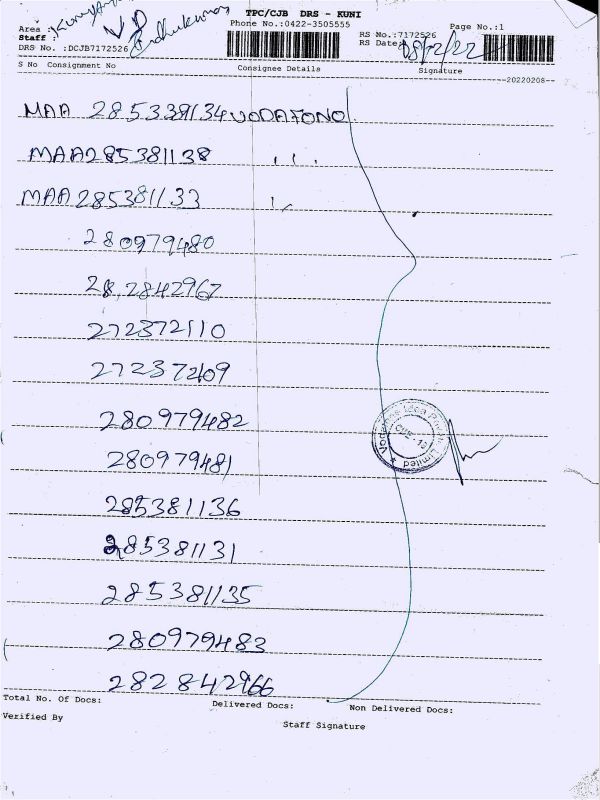 TPC/CJB DRS - KUNI
Area :
Phone No.:0422-3505555
Page No.:1
Staff :
RS No.:7172526
DRS No. :DCJB7172526
RS Date: 08/2/22
S No Consignment No Consignee Details Signature
20220208
MAA 285338134 VODAFONO
MAA285381138 ,, ,, .
MAA 285381133 ,,
280979480
282842967
272372110
272372109
280979482
280979481
285381136
285381131
285381135
280979483
282842966
Vodafone Idea Limited
CHE-13
Total No. Of Docs: Delivered Docs: Non Delivered Docs:
Verified By Staff Signature